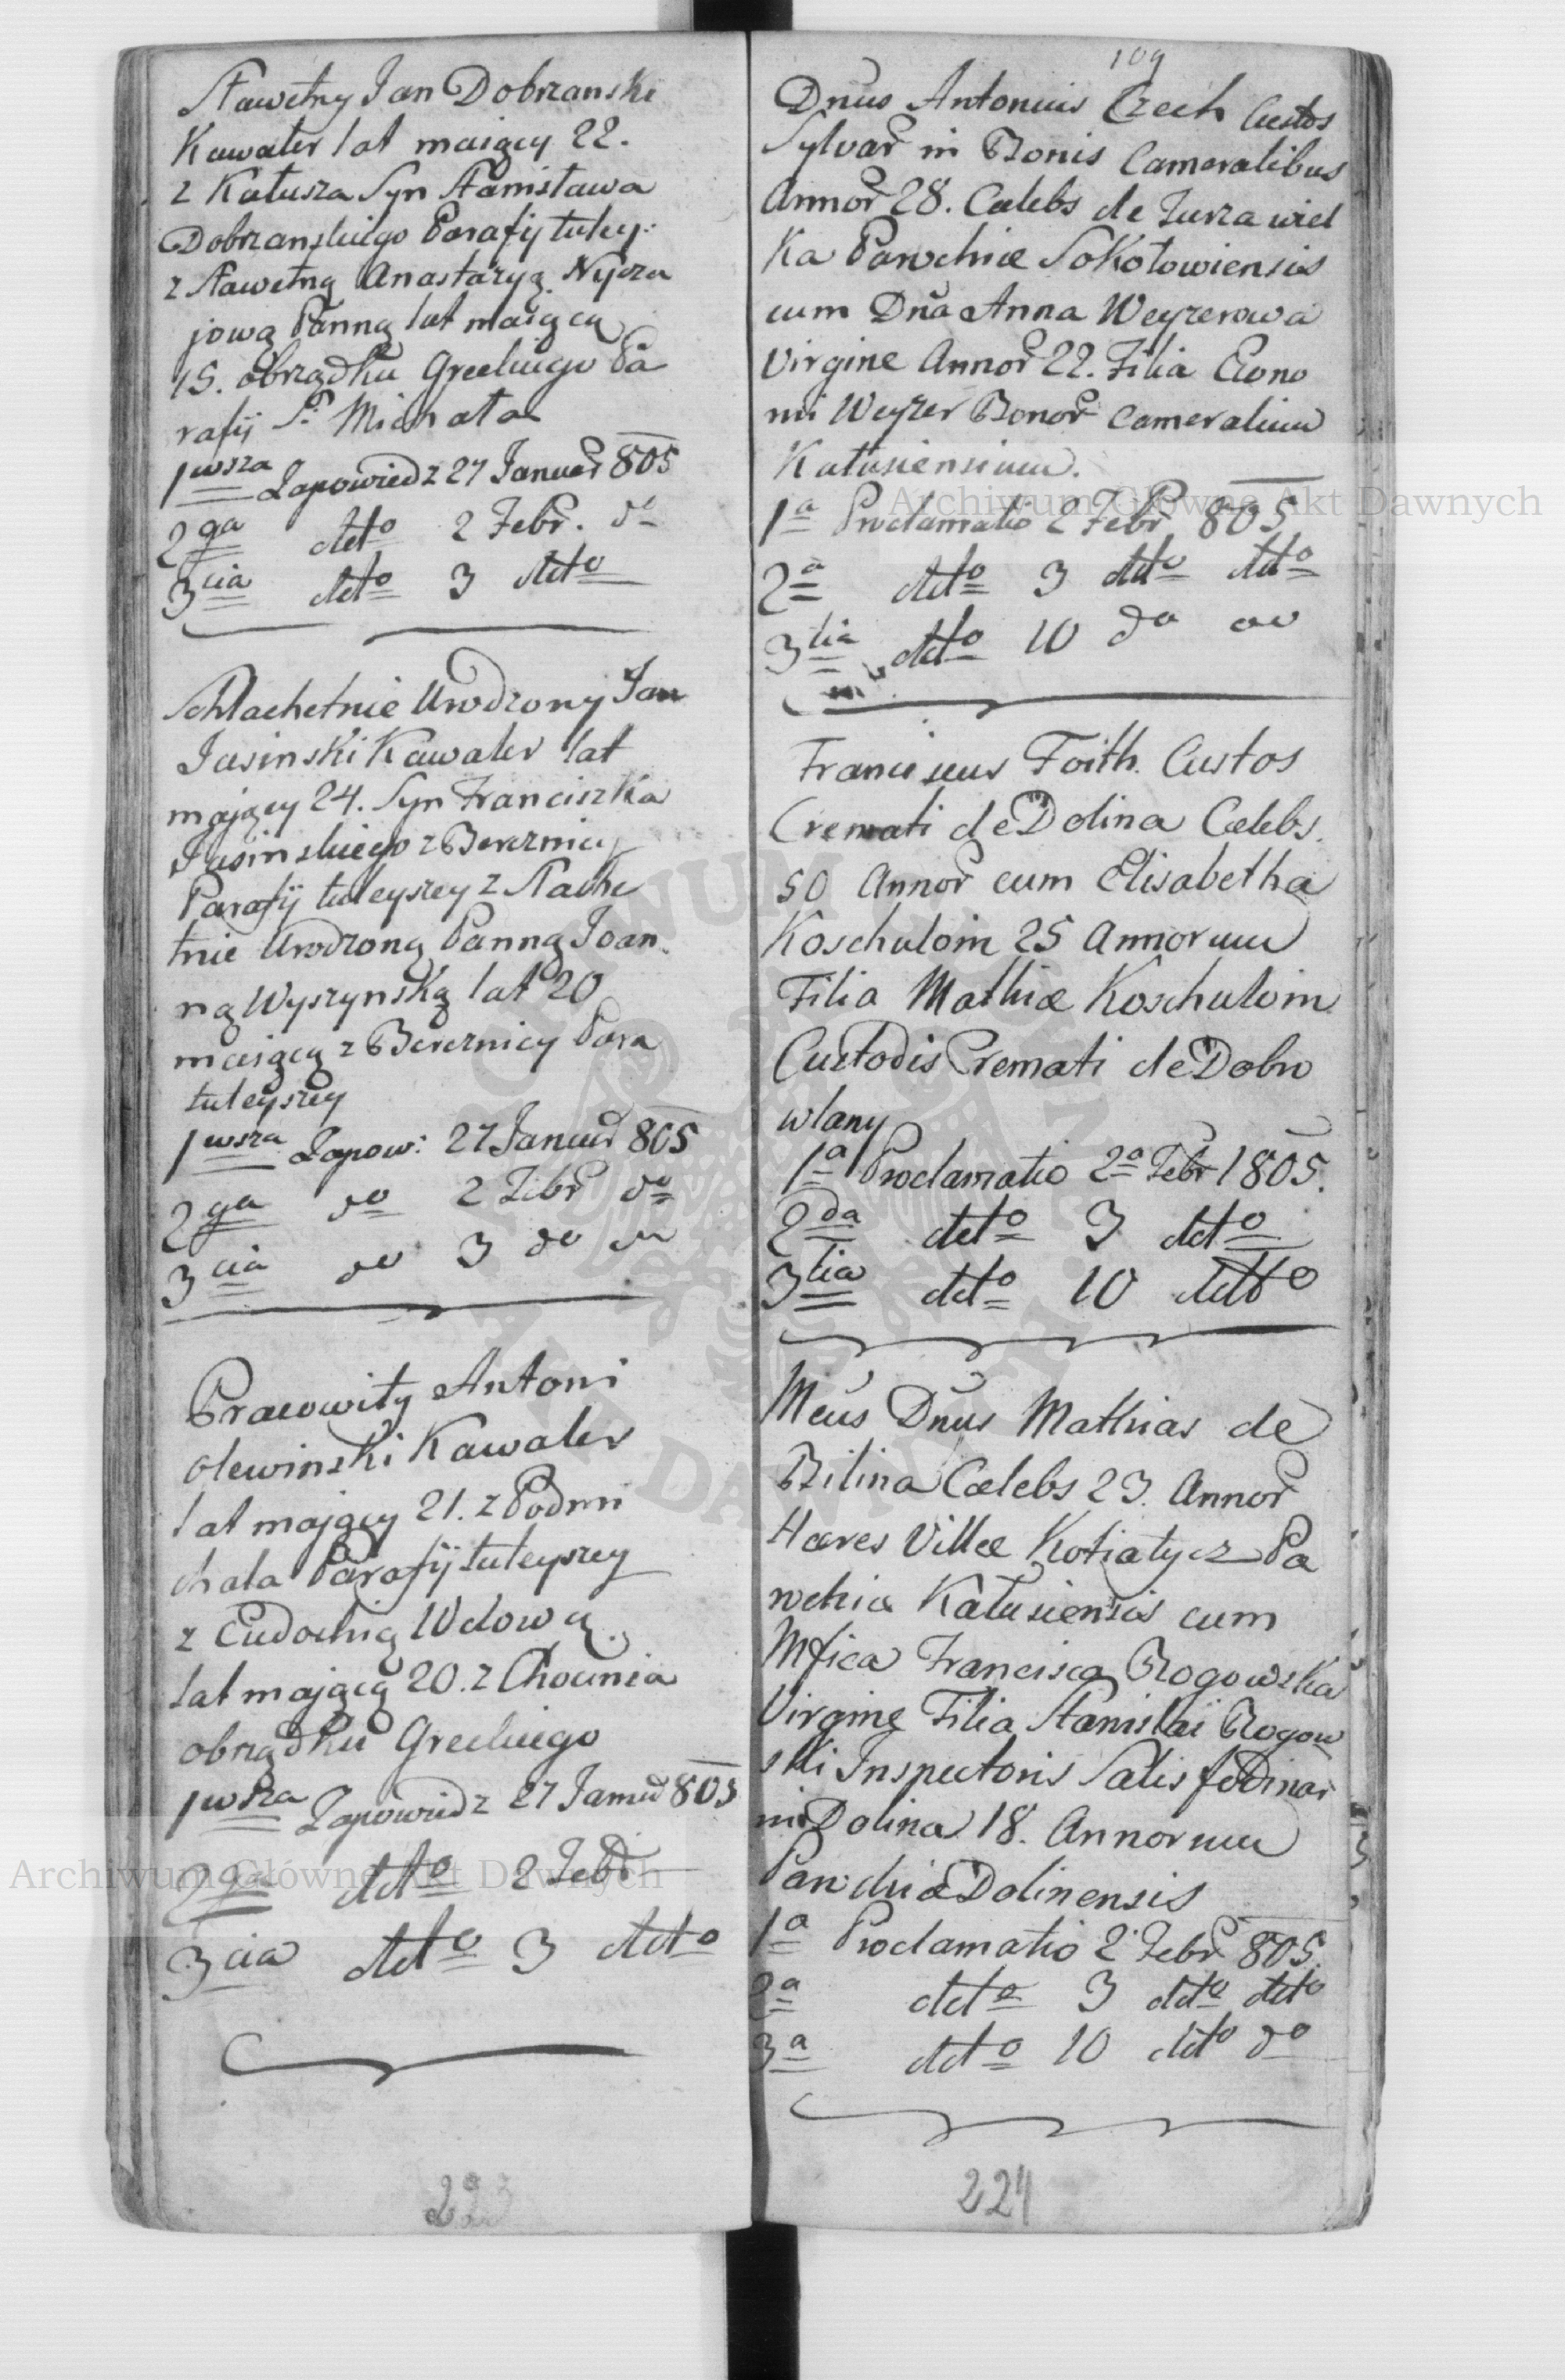 Sławetny Jan Dobrzanski
Kawaler lat maiący 22.
z Kałusza Syn Stanisława
Dobrzanskiego Parafij tutey:
z Sławetną Anastazyą Nycza
jową Panną lat maiącą
15. obrządku Greckiego Pa
rafij S. Michała
1wsza Zapowiedz 27 Januar 805
2ga detto 2 Febr. do
3cia detto 3 detto
Schlachetnie Urodzony Jan
Jasinski Kawaler lat
mający 24. Syn Franciszka
Jasinskiego z Bereznicy
Parafij tuteyszey z Slache
tnie Urodzoną Panną Joan
ną Wyszynską lat 20
maiącą z Bereznicy Para
tuteyszey
1wsza Zapow: 27 Januar 805
2ga do 2 Febr do
3cia do 3 do do
Pracowity Antoni
olewinski Kawaler
lat mający 21. z Podmi
chala Parafij tuteyszey
z Eudochią Wdową
lat mającą 20. z Chocinia
obrządku Greckiego
1wsza Zapowiedz 27 Januar 805
2ga detto 2 Febr
3cia detto 3 detto
223
109
Dnus Antonius Czech Custos
Sylvar in Bonis Cameralibus
Annor 28. Cælebs de Turza wiel
ka Parochiæ Sokołowiensis
cum Dna Anna Weyzerowa
Virgine Annor 22. Filia Econo
mi Weyzer Bonor Cameralium
Kałusiensium.
1a Proclamatio 2 Febr 805
2a detto 3 detto detto
3tia detto 10 do do
Franciscus Foith. Custos
Cremati de Dolina Cælebs.
50 Annor cum Elisabetha
Koschuloin 25 Annorum
Filia Mathiæ Koschuloin
Custodis Cremati de Dobro
wlany
1a Proclamatio 2a Febr 1805.
2da detto 3 detto
3tia detto 10 detto
Mcus Dnus Mathias de
Bilina Cælebs 23. Annor
Hæres Villæ Kotiatycz Pa
rochiæ Kałusiensis cum
Mfica Francisca Rogowska
Virgine Filia Stanislai Rogow
ski Inspectoris Salis fodinar
in Dolina 18. Annorum
Parochiæ Dolinensis
1a Proclamatio 2 Febr 805.
2a detto 3 detto detto
3a detto 10 detto do
224
Archiwum Główne Akt Dawnych
Archiwum Główne Akt Dawnych
ARCHIWUM GŁÓWNE AKT DAWNYCH